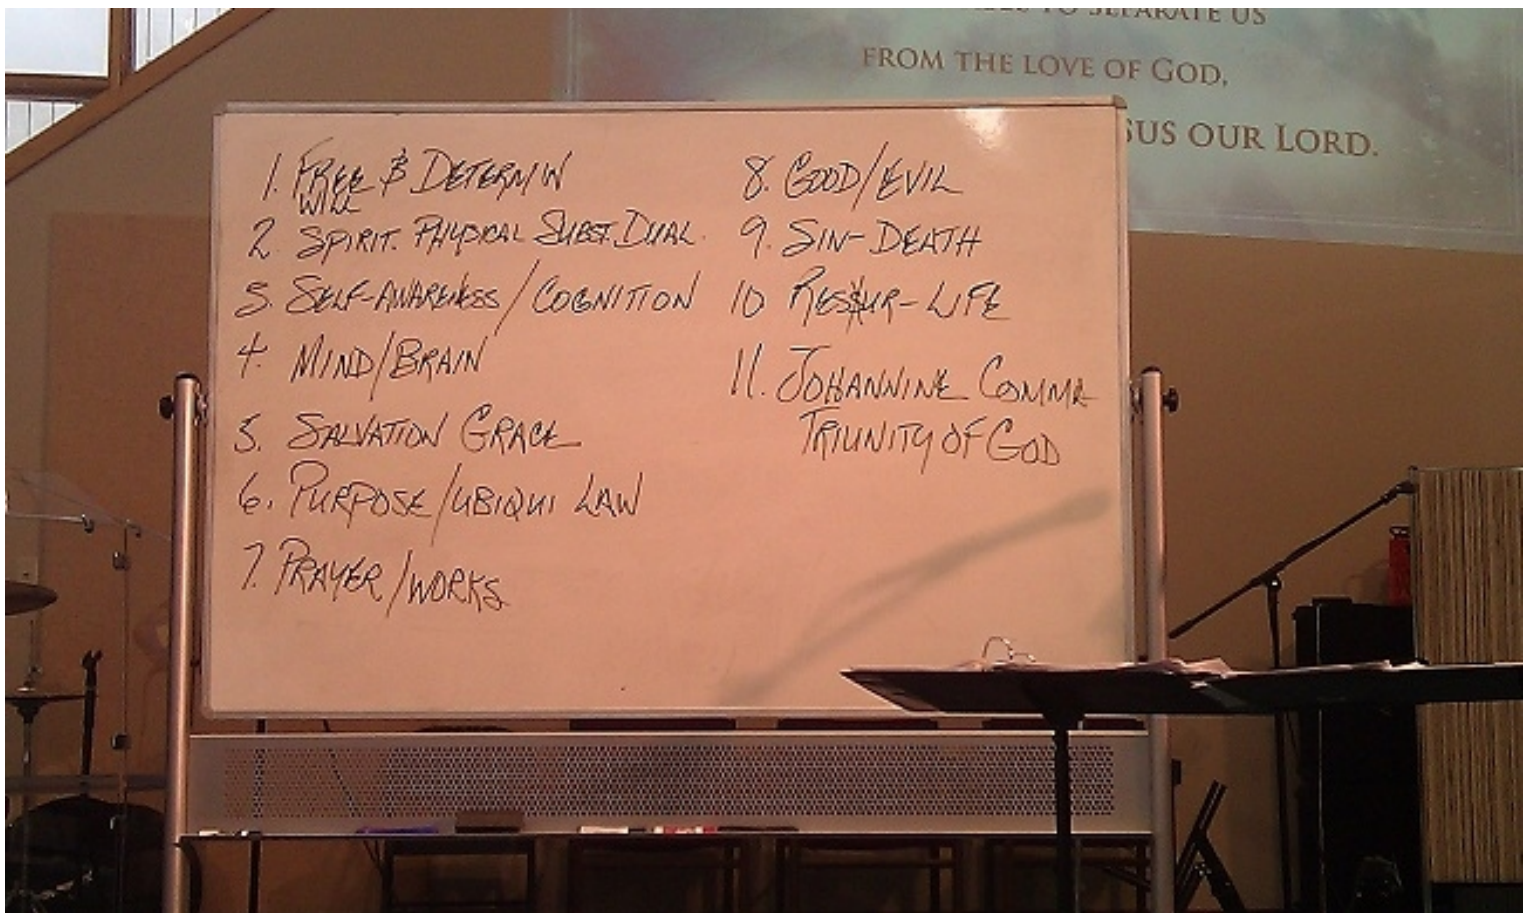 TO SEPARATE US
FROM THE LOVE OF GOD,
SUS OUR LORD.
1. FREE & DETERMIN
WILL
2. SPIRIT. PHYSICAL SUBST. DUAL.
3. SELF-AWARENESS / COGNITION
4. MIND/BRAIN
5. SALVATION GRACE
6. PURPOSE/UBIQUI LAW
7. PRAYER/WORKS
8. GOOD/EVIL
9. SIN-DEATH
10 RESUR-LIFE
11. JOHANNINE COMMA
TRIUNITY OF GOD